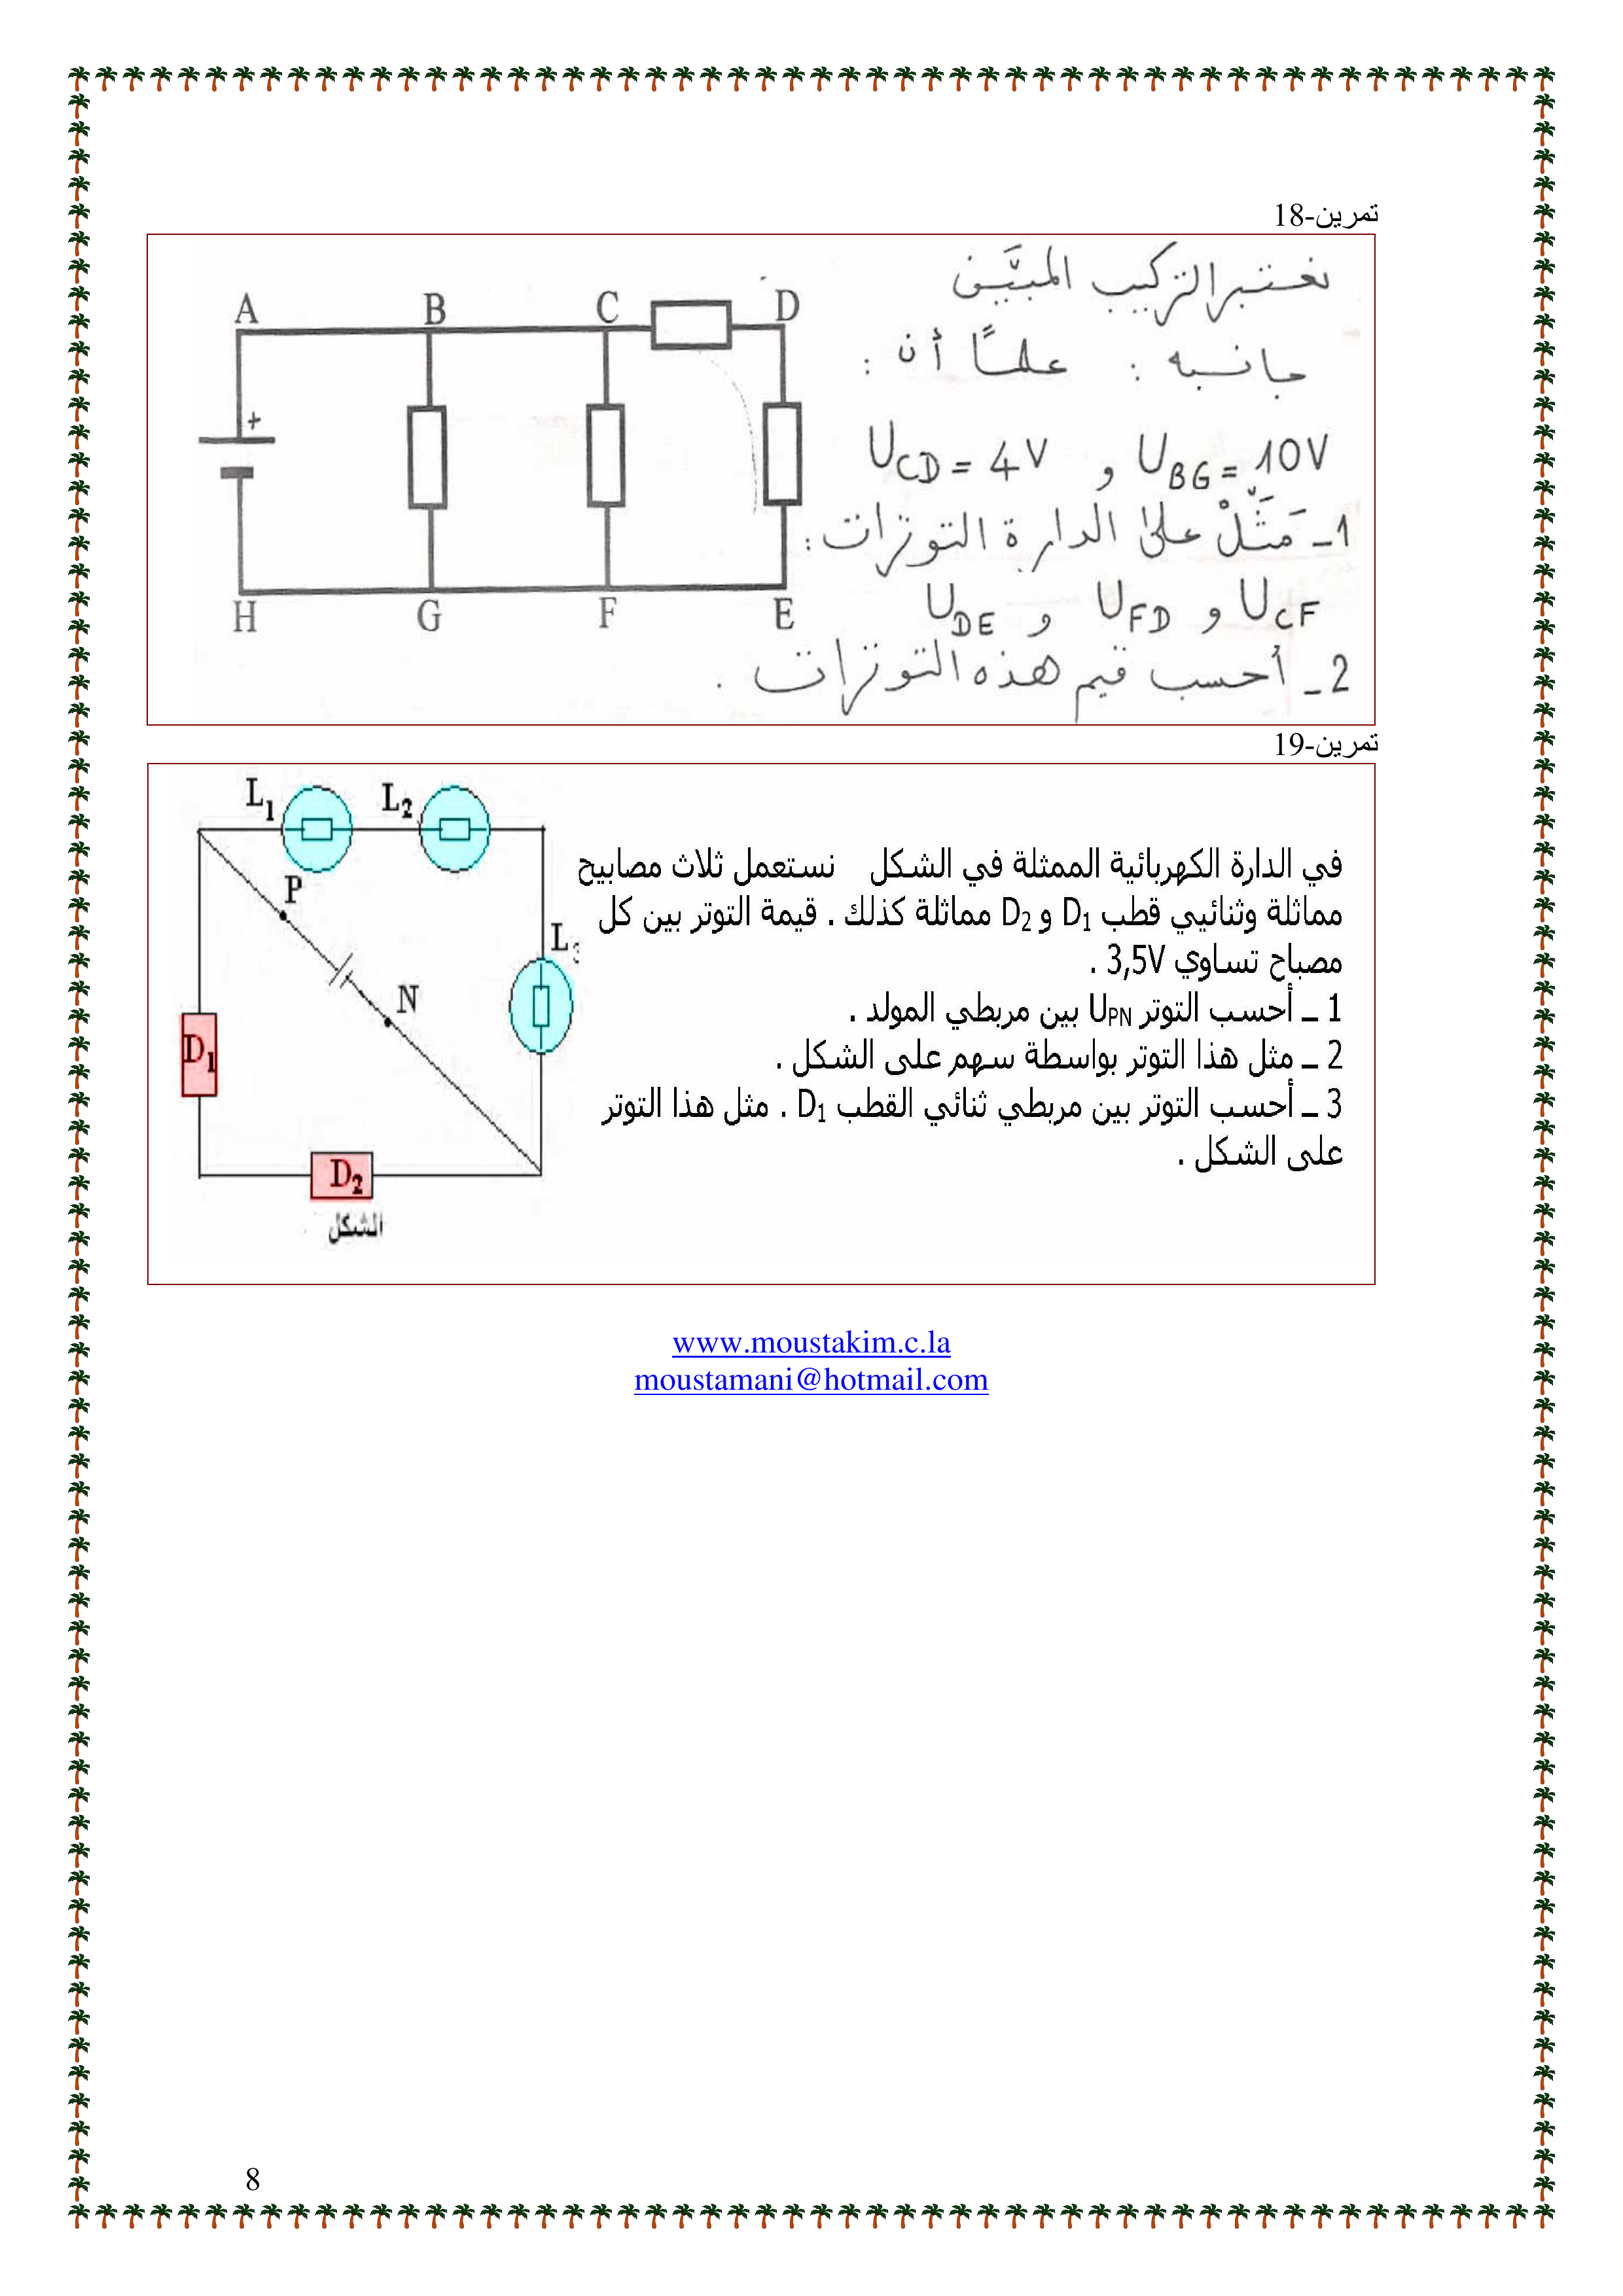 تمرين-18
نعتبر التركيب المبيَّن
جانبه : علمًا أن :
U_BG = 10V و U_CD = 4V
1- مَثِّلْ على الدارة التوترات :
U_CF و U_FD و U_DE
2- أحسب قيم هذه التوترات .
A B C D
+
H G F E
تمرين-19
في الدارة الكهربائية الممثلة في الشكل نستعمل ثلاث مصابيح
مماثلة وثنائيي قطب D1 و D2 مماثلة كذلك . قيمة التوتر بين كل
مصباح تساوي 3,5V .
1 ــ أحسب التوتر UPN بين مربطي المولد .
2 ــ مثل هذا التوتر بواسطة سهم على الشكل .
3 ــ أحسب التوتر بين مربطي ثنائي القطب D1 . مثل هذا التوتر
على الشكل .
L1 L2
P
L3
N
D1
D2
الشكل
www.moustakim.c.la
moustamani@hotmail.com
8